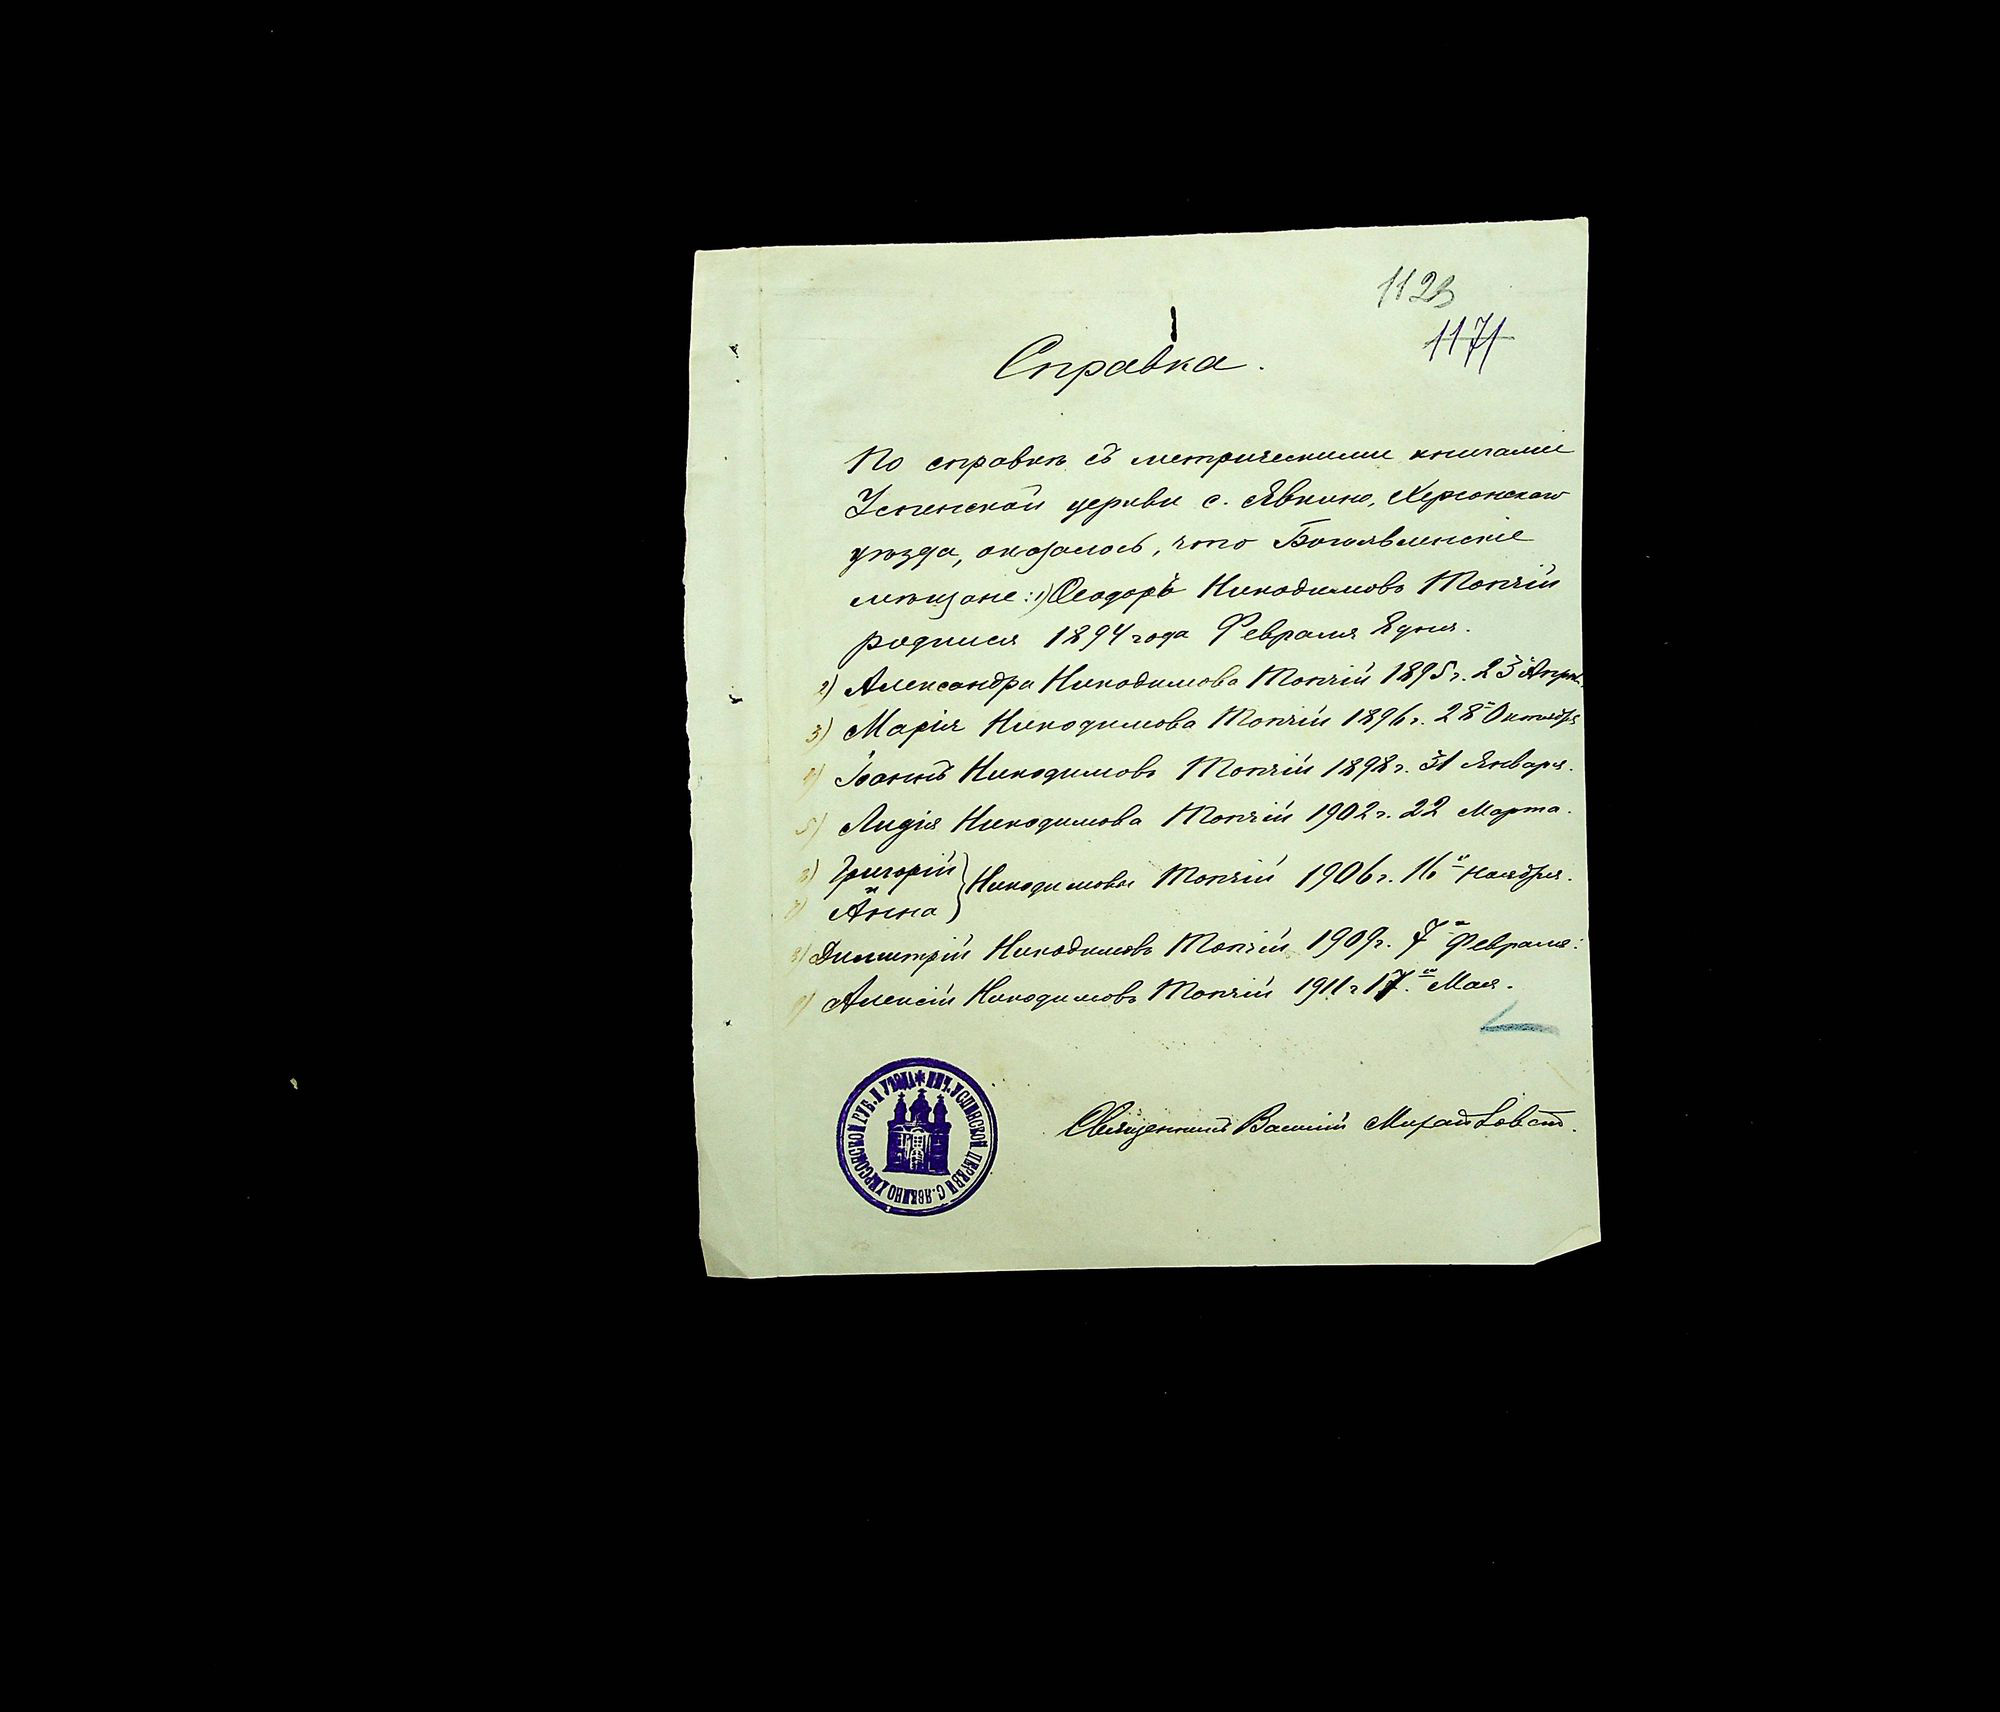 1123
1171
Справка.
По справкѣ съ метрическими книгами
Успенской церкви с. Явкино, Херсонскаго
уѣзда, оказалось, что Богоявленскіе
мѣщане: 1) Ѳеодоръ Никодимовъ Топчій
родился 1894 года Февраля 8 дня.
2) Александра Никодимова Топчій 1895 г. 23 Апрѣл.
3) Марія Никодимова Топчій 1896 г. 28 Октября
4) Іоаннъ Никодимовъ Топчій 1898 г. 31 Января.
5) Лидія Никодимова Топчій 1902 г. 22 Марта.
6) Григорій
и
7) Анна
Никодимовы Топчій 1906 г. 16 Ноября.
8) Димитрій Никодимовъ Топчій 1909 г. 7 Февраля.
9) Алексій Никодимовъ Топчій 1911 г 17 Мая.
Священникъ Василій
ПЕЧ. УСПЕНСКОЙ ЦЕРКВИ С. ЯВКИНО ХЕРСОНСКОЙ ГУБ. И УѢЗДА